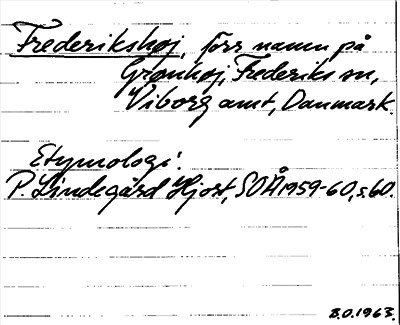 Frederikshøj, förr namn på
Grønhøj, Frederiks sn,
Viborg amt, Danmark.
Etymologi:
P. Lindegård Hjort, SOÅ 1959-60, s. 60.
B.O. 1963.